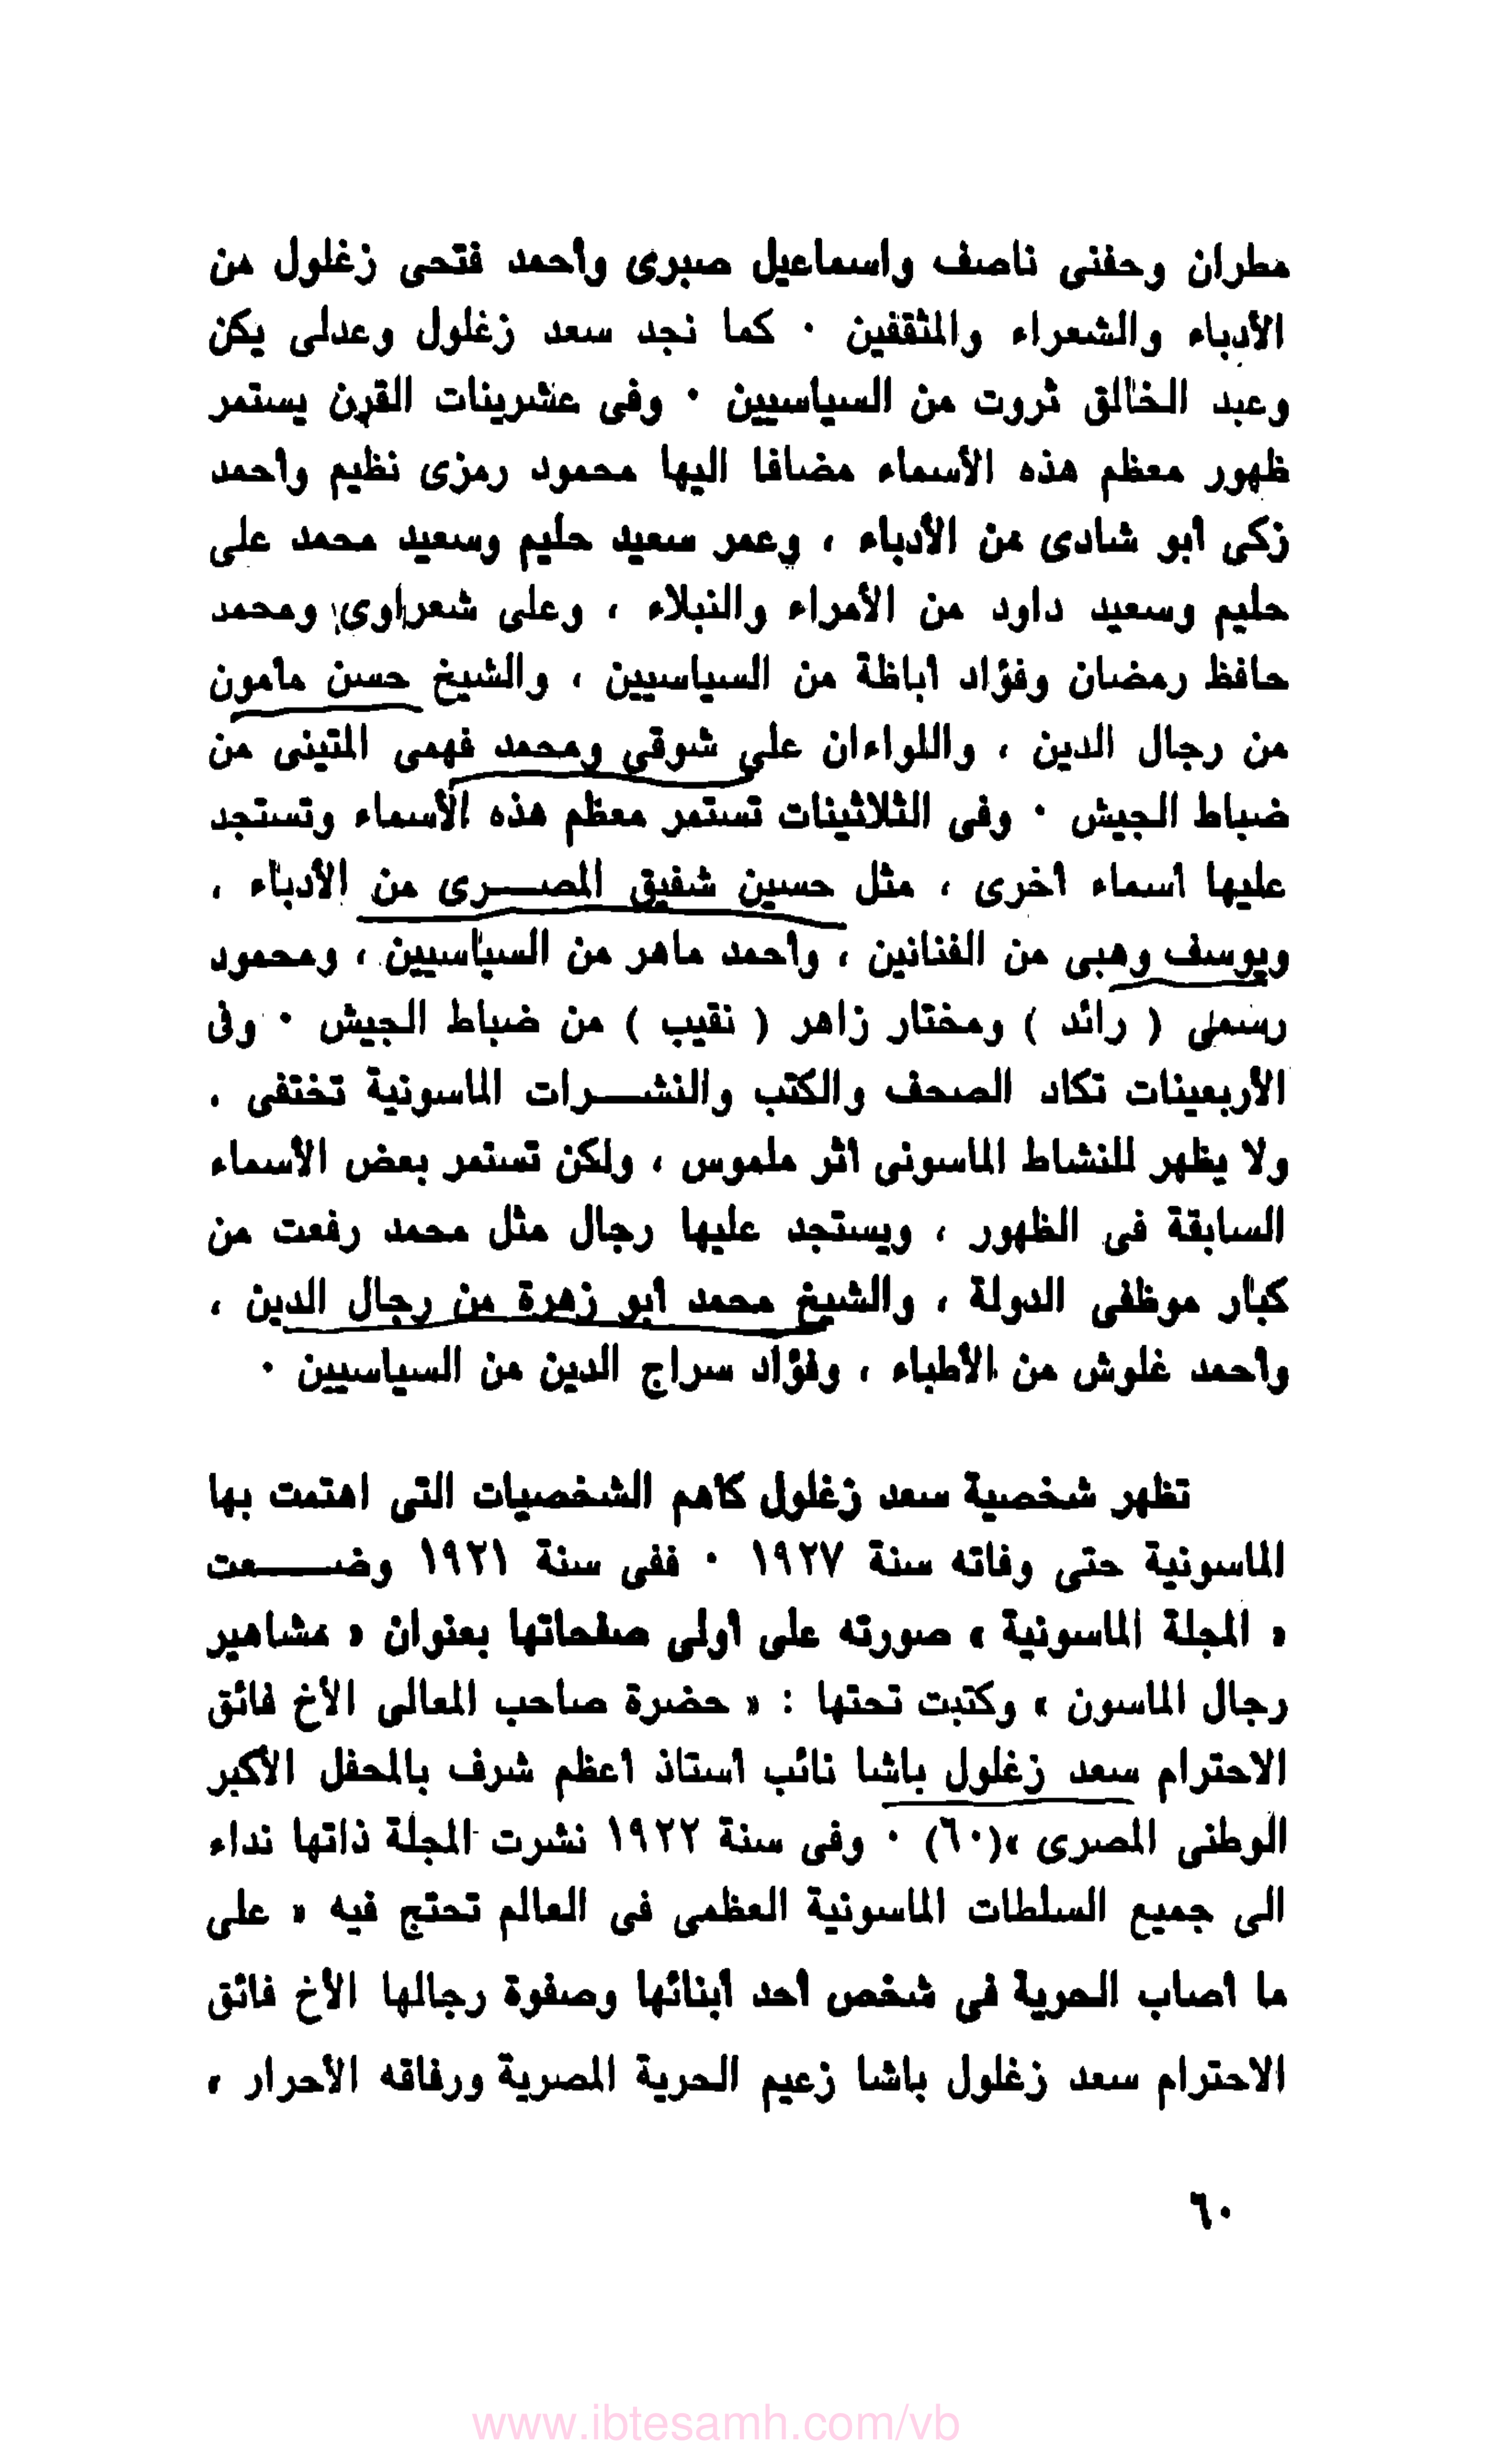 مطران وحفنى ناصف واسماعيل صبرى وأحمد فتحى زغلول من
الأدباء والشعراء والمثقفين ٠ كما نجد سعد زغلول وعدلى يكن
وعبد الخالق ثروت من السياسيين ٠ وفى عشرينات القرن يستمر
ظهور معظم هذه الأسماء مضافا اليها محمود رمزى نظيم وأحمد
زكى أبو شادى من الأدباء ، وعمر سعيد حليم وسعيد محمد على
حليم وسعيد داود من الأمراء والنبلاء ، وعلى شعراوى ومحمد
حافظ رمضان وفؤاد أباظة من السياسيين ، والشيخ حسن مأمون
من رجال الدين ، واللواءان على شوقى ومحمد فهمى المتينى من
ضباط الجيش ٠ وفى الثلاثينات تستمر معظم هذه الأسماء وتستجد
عليها أسماء أخرى ، مثل حسين شفيق المصـــرى من الأدباء ،
ويوسف وهبى من الفنانين ، وأحمد ماهر من السياسيين ، ومحمود
رسمى ( رائد ) ومختار زاهر ( نقيب ) من ضباط الجيش ٠ وفى
الأربعينات تكاد الصحف والكتب والنشـــرات الماسونية تختفى .
ولا يظهر للنشاط الماسونى أثر ملموس ، ولكن تستمر بعض الأسماء
السابقة فى الظهور ، ويستجد عليها رجال مثل محمد رفعت من
كبار موظفى الدولة ، والشيخ محمد أبو زهرة من رجال الدين ،
وأحمد غلوش من الأطباء ، وفؤاد سراج الدين من السياسيين ٠
تظهر شخصية سعد زغلول كأهم الشخصيات التى اهتمت بها
الماسونية حتى وفاته سنة ١٩٢٧ ٠ ففى سنة ١٩٢١ وضـــــعت
« المجلة الماسونية » صورته على أولى صفحاتها بعنوان « مشاهير
رجال الماسون » وكتبت تحتها : « حضرة صاحب المعالى الأخ فائق
الاحترام سعد زغلول باشا نائب أستاذ أعظم شرف بالمحفل الأكبر
الوطنى المصرى »(٦٠) ٠ وفى سنة ١٩٢٢ نشرت المجلة ذاتها نداء
الى جميع السلطات الماسونية العظمى فى العالم تحتج فيه « على
ما أصاب الحرية فى شخص أحد أبنائها وصفوة رجالها الأخ فائق
الاحترام سعد زغلول باشا زعيم الحرية المصرية ورفاقه الأحرار ،
٦٠
www.ibtesamh.com/vb